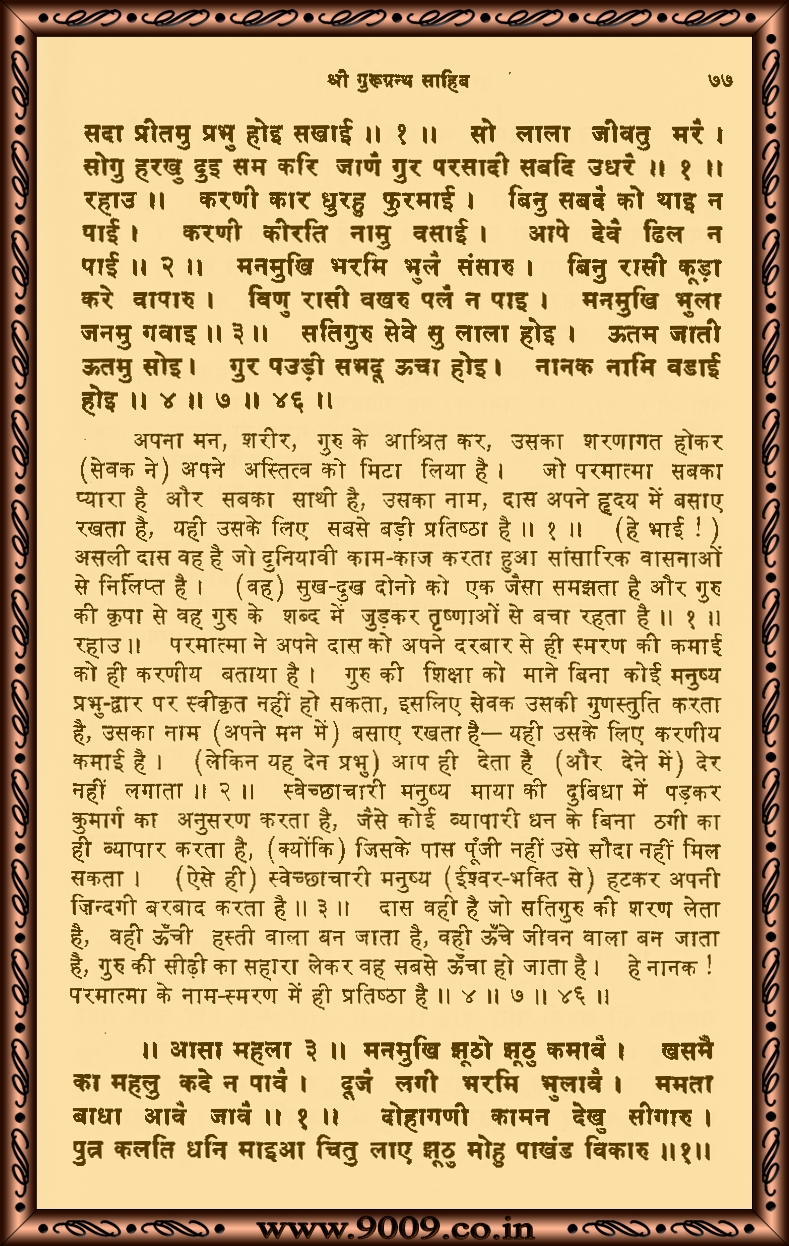 श्री गुरूग्रन्थ साहिब ७७
सदा प्रीतमु प्रभु होइ सखाई ॥ १ ॥ सो लाला जीवतु मरै ।
सोगु हरखु दुइ सम करि जाणै गुर परसादी सबदि उधरै ॥ १ ॥
रहाउ ॥ करणी कार धुरहु फुरमाई । बिनु सबदै को थाइ न
पाई । करणी कीरति नामु वसाई । आपे देवै ढिल न
पाई ॥ २ ॥ मनमुखि भरमि भुलै संसारु । बिनु रासी कूड़ा
करे वापारु । विणु रासी वखरु पलै न पाइ । मनमुखि भुला
जनमु गवाइ ॥ ३ ॥ सतिगुरु सेवे सु लाला होइ । ऊतम जाती
ऊतमु सोइ । गुर पउड़ी सभदू ऊचा होइ । नानक नामि वडाई
होइ ॥ ४ ॥ ७ ॥ ४६ ॥
अपना मन, शरीर, गुरु के आश्रित कर, उसका शरणागत होकर
(सेवक ने) अपने अस्तित्व को मिटा लिया है । जो परमात्मा सबका
प्यारा है और सबका साथी है, उसका नाम, दास अपने हृदय में बसाए
रखता है, यही उसके लिए सबसे बड़ी प्रतिष्ठा है ॥ १ ॥ (हे भाई !)
असली दास वह है जो दुनियावी काम-काज करता हुआ सांसारिक वासनाओं
से निर्लिप्त है । (वह) सुख-दुख दोनो को एक जैसा समझता है और गुरु
की कृपा से वह गुरु के शब्द में जुड़कर तृष्णाओं से बचा रहता है ॥ १ ॥
रहाउ ॥ परमात्मा ने अपने दास को अपने दरबार से ही स्मरण की कमाई
को ही करणीय बताया है । गुरु की शिक्षा को माने बिना कोई मनुष्य
प्रभु-द्वार पर स्वीकृत नहीं हो सकता, इसलिए सेवक उसकी गुणस्तुति करता
है, उसका नाम (अपने मन में) बसाए रखता है— यही उसके लिए करणीय
कमाई है । (लेकिन यह देन प्रभु) आप ही देता है (और देने में) देर
नहीं लगाता ॥ २ ॥ स्वेच्छाचारी मनुष्य माया की दुबिधा में पड़कर
कुमार्ग का अनुसरण करता है, जैसे कोई व्यापारी धन के बिना ठगी का
ही व्यापार करता है, (क्योंकि) जिसके पास पूँजी नहीं उसे सौदा नहीं मिल
सकता । (ऐसे ही) स्वेच्छाचारी मनुष्य (ईश्वर-भक्ति से) हटकर अपनी
ज़िन्दगी बरबाद करता है ॥ ३ ॥ दास वही है जो सतिगुरु की शरण लेता
है, वही ऊँची हस्ती वाला बन जाता है, वही ऊँचे जीवन वाला बन जाता
है, गुरु की सीढ़ी का सहारा लेकर वह सबसे ऊँचा हो जाता है । हे नानक !
परमात्मा के नाम-स्मरण में ही प्रतिष्ठा है ॥ ४ ॥ ७ ॥ ४६ ॥
॥ आसा महला ३ ॥ मनमुखि झूठो झूठु कमावै । खसमै
का महलु कदे न पावै । दूजै लगी भरमि भुलावै । ममता
बाधा आवै जावै ॥ १ ॥ दोहागणी कामन देखु सीगारु ।
पुत्र कलति धनि माइआ चितु लाए झूठु मोहु पाखंड विकारु ॥१॥
www.9009.co.in